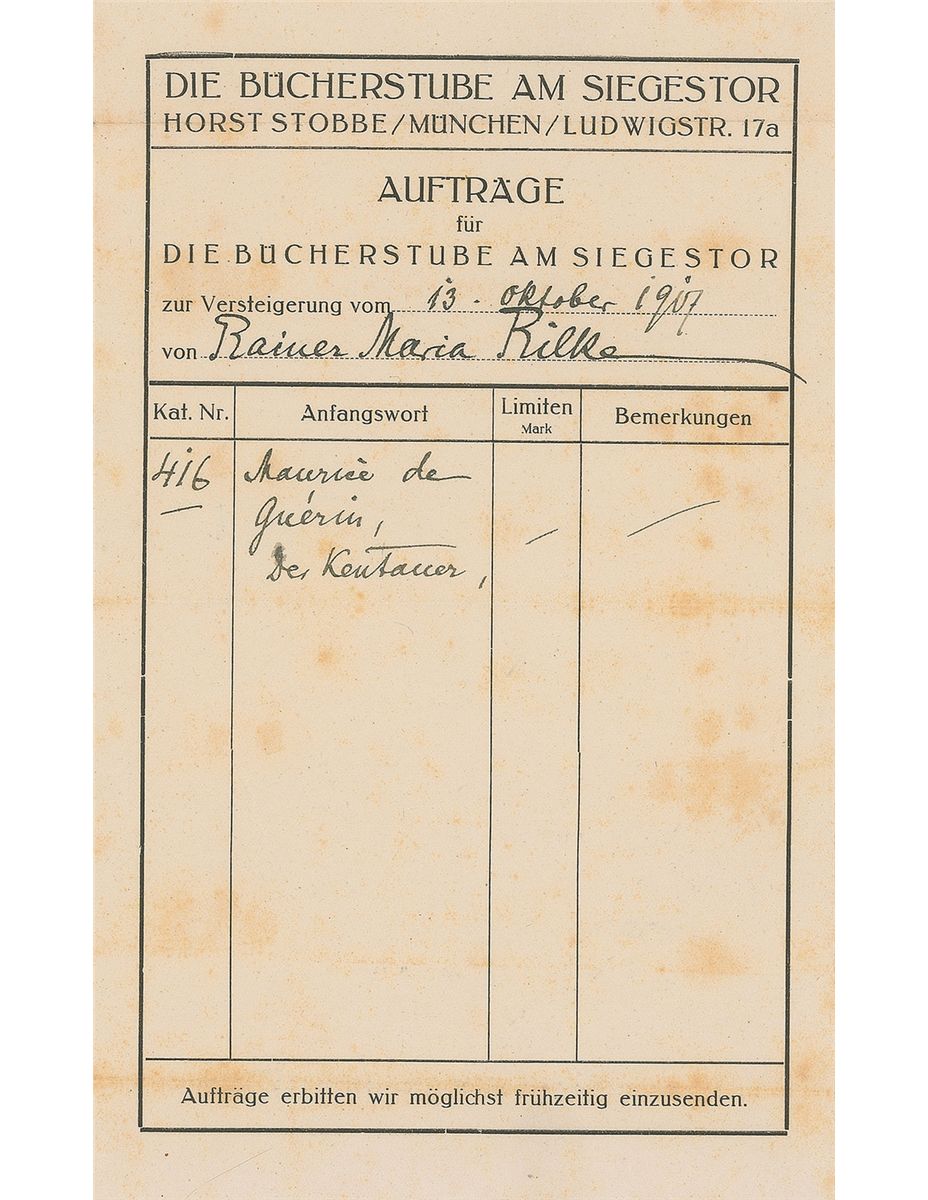 DIE BÜCHERSTUBE AM SIEGESTOR
HORST STOBBE/MÜNCHEN/LUDWIGSTR. 17a
AUFTRÄGE
für
DIE BÜCHERSTUBE AM SIEGESTOR
zur Versteigerung vom 13. Oktober 1917
von Rainer Maria Rilke
Kat. Nr. Anfangswort Limiten Mark Bemerkungen
416 Maurice de
Guérin, — —
Der Kentauer,
Aufträge erbitten wir möglichst frühzeitig einzusenden.